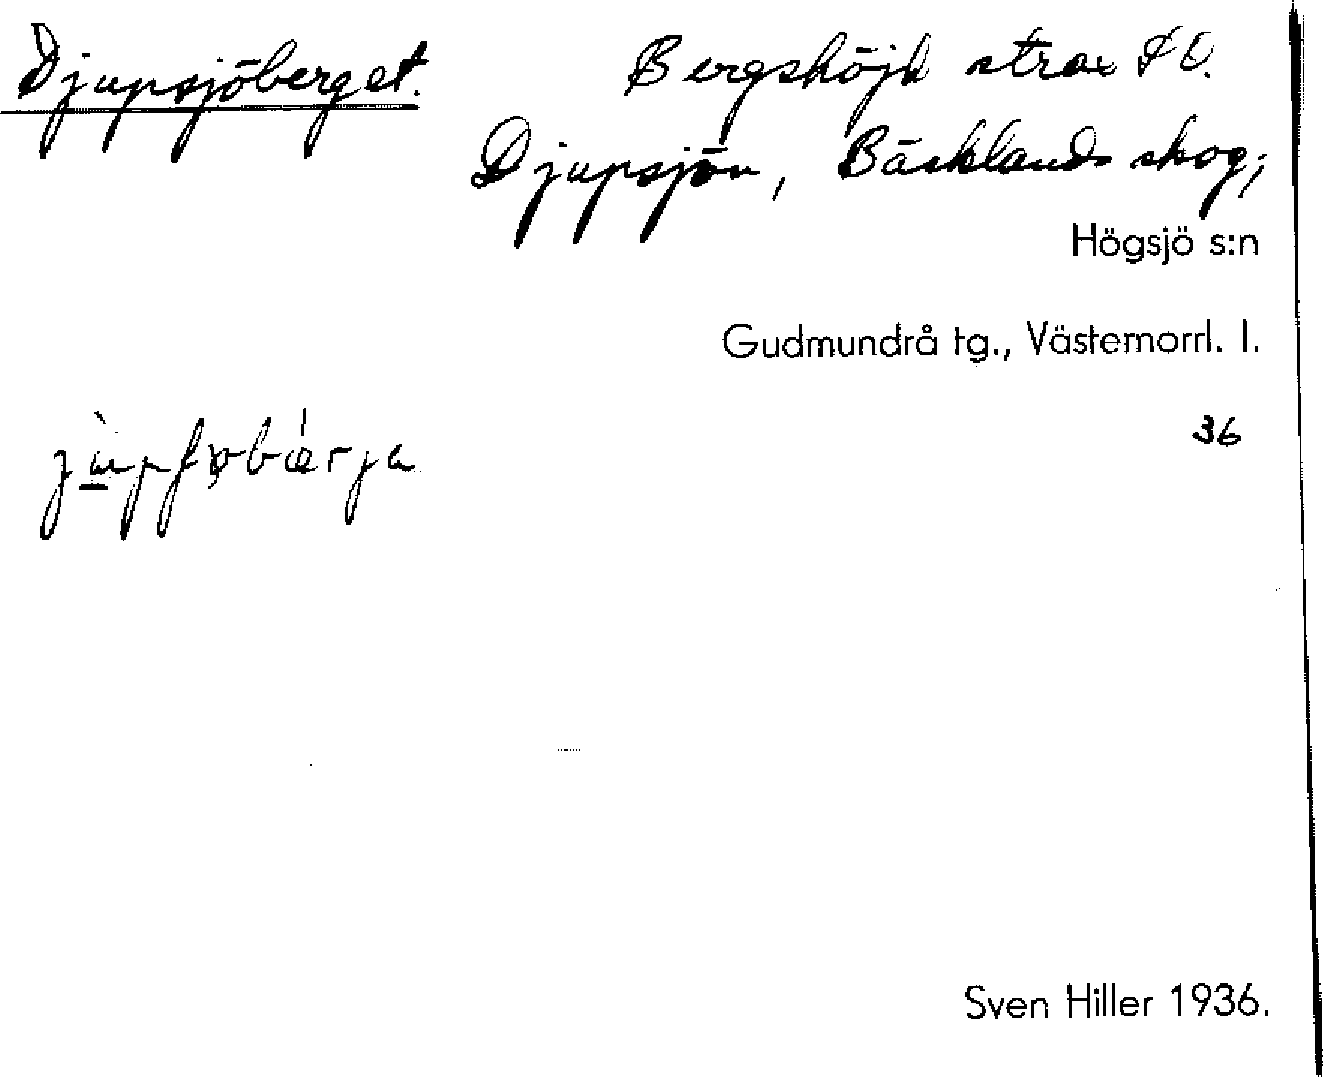 Djupsjöberget.
Bergshöjd strax SO.
Djupsjön, Bäcklands skog;
Högsjö s:n
Gudmundrå tg., Västernorrl. l.
36
Sven Hiller 1936.